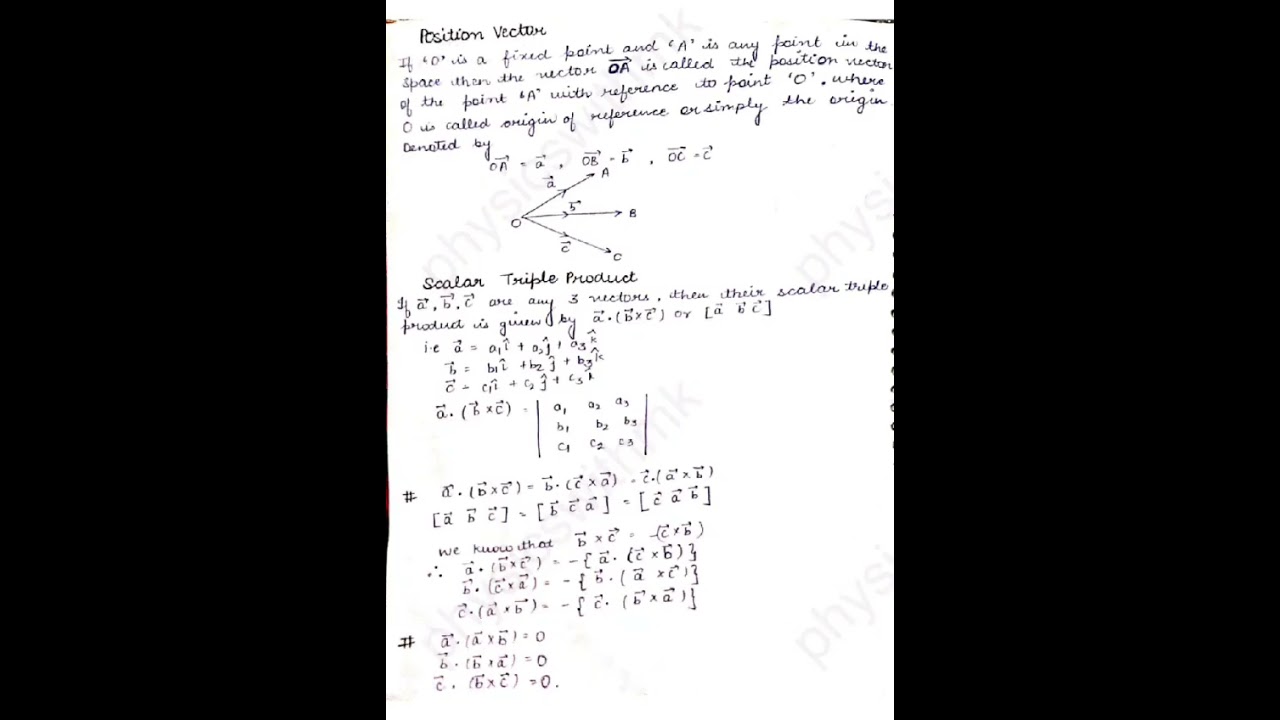 Position Vector
If 'O' is a fixed point and 'A' is any point in the
space then the vector OA⃗ is called the position vector
of the point 'A' with reference to point 'O'. where
O is called origin of reference or simply the origin
Denoted by
OA⃗ = a⃗ , OB⃗ = b⃗ , OC⃗ = c⃗
a⃗ A
b⃗ B
O
c⃗ C
Scalar Triple Product
If a⃗, b⃗, c⃗ are any 3 vectors, then their scalar triple
product is given by a⃗·(b⃗×c⃗) or [a⃗ b⃗ c⃗]
i.e a⃗ = a₁î + a₂ĵ + a₃k̂
b⃗ = b₁î + b₂ĵ + b₃k̂
c⃗ = c₁î + c₂ĵ + c₃k̂
a⃗·(b⃗×c⃗) = | a₁ a₂ a₃ |
b₁ b₂ b₃
c₁ c₂ c₃
# a⃗·(b⃗×c⃗) = b⃗·(c⃗×a⃗) = c⃗·(a⃗×b⃗)
[a⃗ b⃗ c⃗] = [b⃗ c⃗ a⃗] = [c⃗ a⃗ b⃗]
we know that b⃗×c⃗ = -(c⃗×b⃗)
∴ a⃗·(b⃗×c⃗) = -{a⃗·(c⃗×b⃗)}
b⃗·(c⃗×a⃗) = -{b⃗·(a⃗×c⃗)}
c⃗·(a⃗×b⃗) = -{c⃗·(b⃗×a⃗)}
# a⃗·(a⃗×b⃗) = 0
b⃗·(b⃗×a⃗) = 0
c⃗·(b⃗×c⃗) = 0.